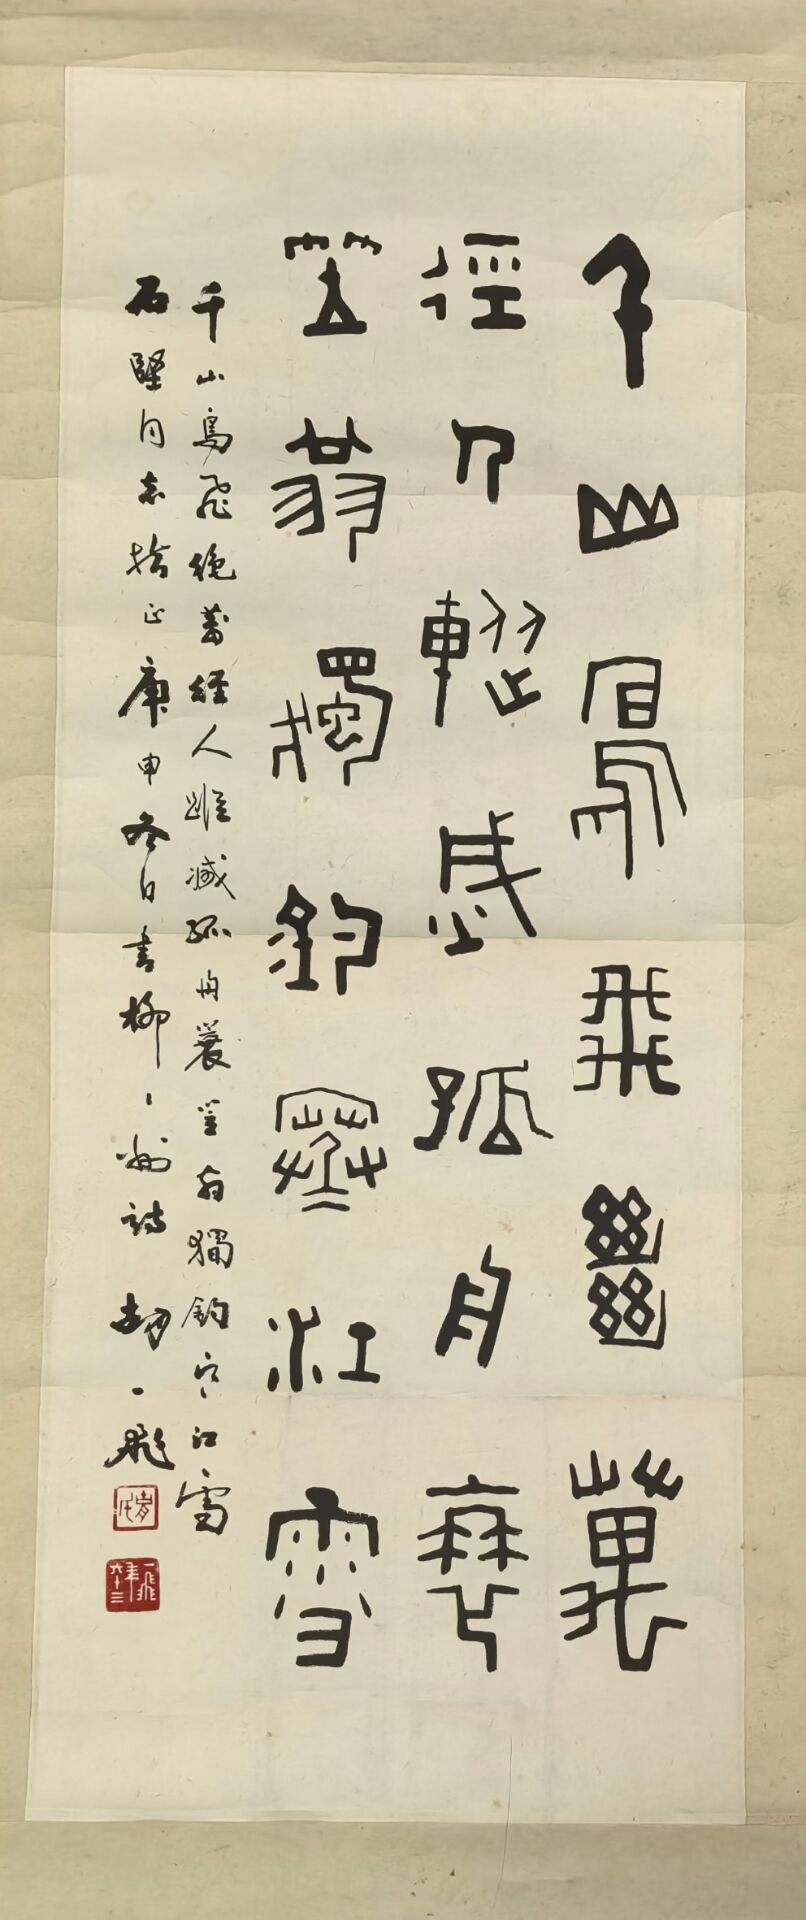 千山鳥飛絕萬
徑人蹤滅孤舟蓑
笠翁獨釣寒江雪
千山鳥飛絕萬徑人蹤滅孤舟蓑笠翁獨釣寒江雪
石堅同志指正庚申冬日書柳〻州詩 胡一飛